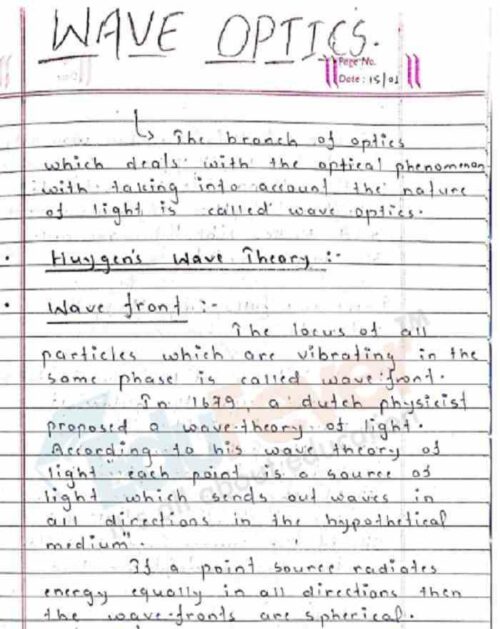 WAVE OPTICS.
Page No.
Date: 15/01
The branch of optics
which deals with the optical phenomenon
with taking into account the nature
of light is called wave optics.
• Huygen's Wave Theory :-
• Wave front :-
The locus of all
particles which are vibrating in the
same phase is called wave front.
In 1679, a dutch physicist
proposed a wave theory of light.
According to his wave theory of
light "each point is a source of
light which sends out waves in
all directions in the hypothetical
medium".
If a point source radiates
energy equally in all directions then
the wave-fronts are spherical.